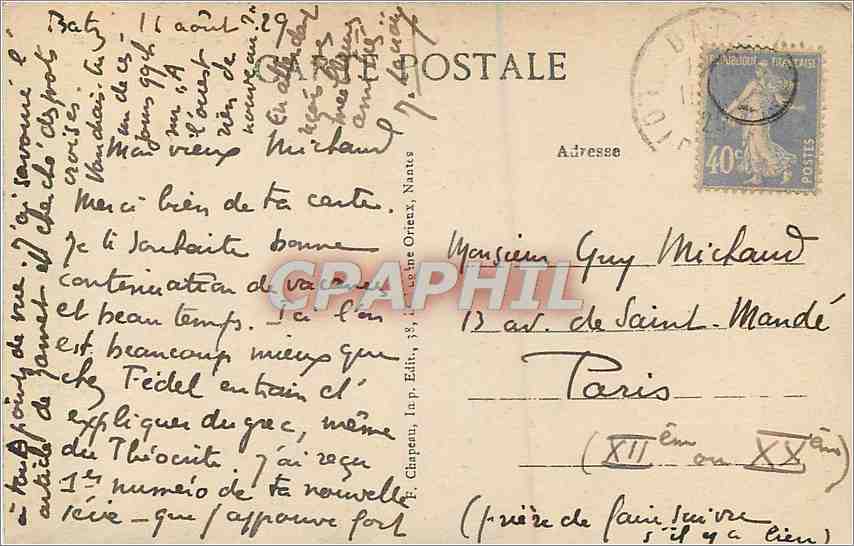 Batz, 11 août 29
CARTE POSTALE
Mon vieux Michaud
Merci bien de ta carte.
Je te souhaite bonne
continuation de vacances
et beau temps. Ici l'on
est beaucoup mieux que
chez Fédel en train d'
expliquer du grec, même
du Théocrite. J'ai reçu
1er numéro de ta nouvelle
série - que j'approuve fort
à tous points de vue. J'ai savouré l'
article de et cherché des mots
croisés. Voudrais-tu
un de ces
jours
sur "A
l'ouest
rien de
nouveau?"
En attendant
reçois mes
meilleures
amitiés
Adresse
REPUBLIQUE FRANÇAISE
40c
POSTES
Monsieur Guy Michaud
13 av. de Saint-Mandé
Paris
(XIIème ou XXème)
(prière de faire suivre
s'il y a lieu)
F. Chapeau, Imp. Edit., 38, Orieux, Nantes
CPAPHIL